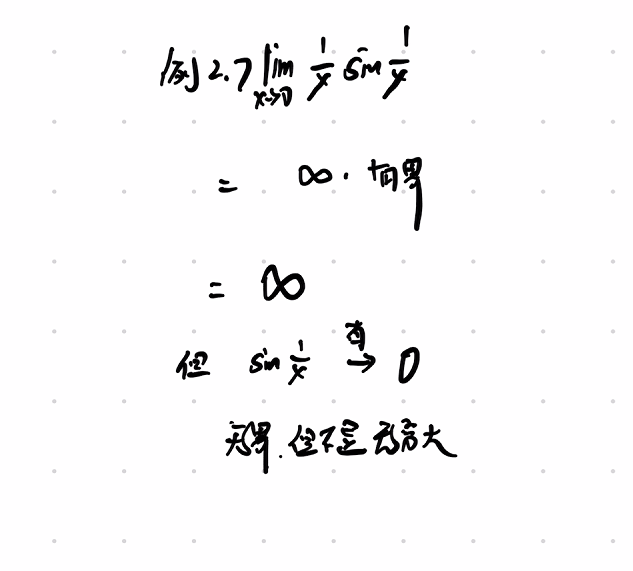 例2.7 lim x→0 1/x sin 1/x
= ∞ · 有界
= ∞
但 sin 1/x 有→ 0
无界.但不是无穷大